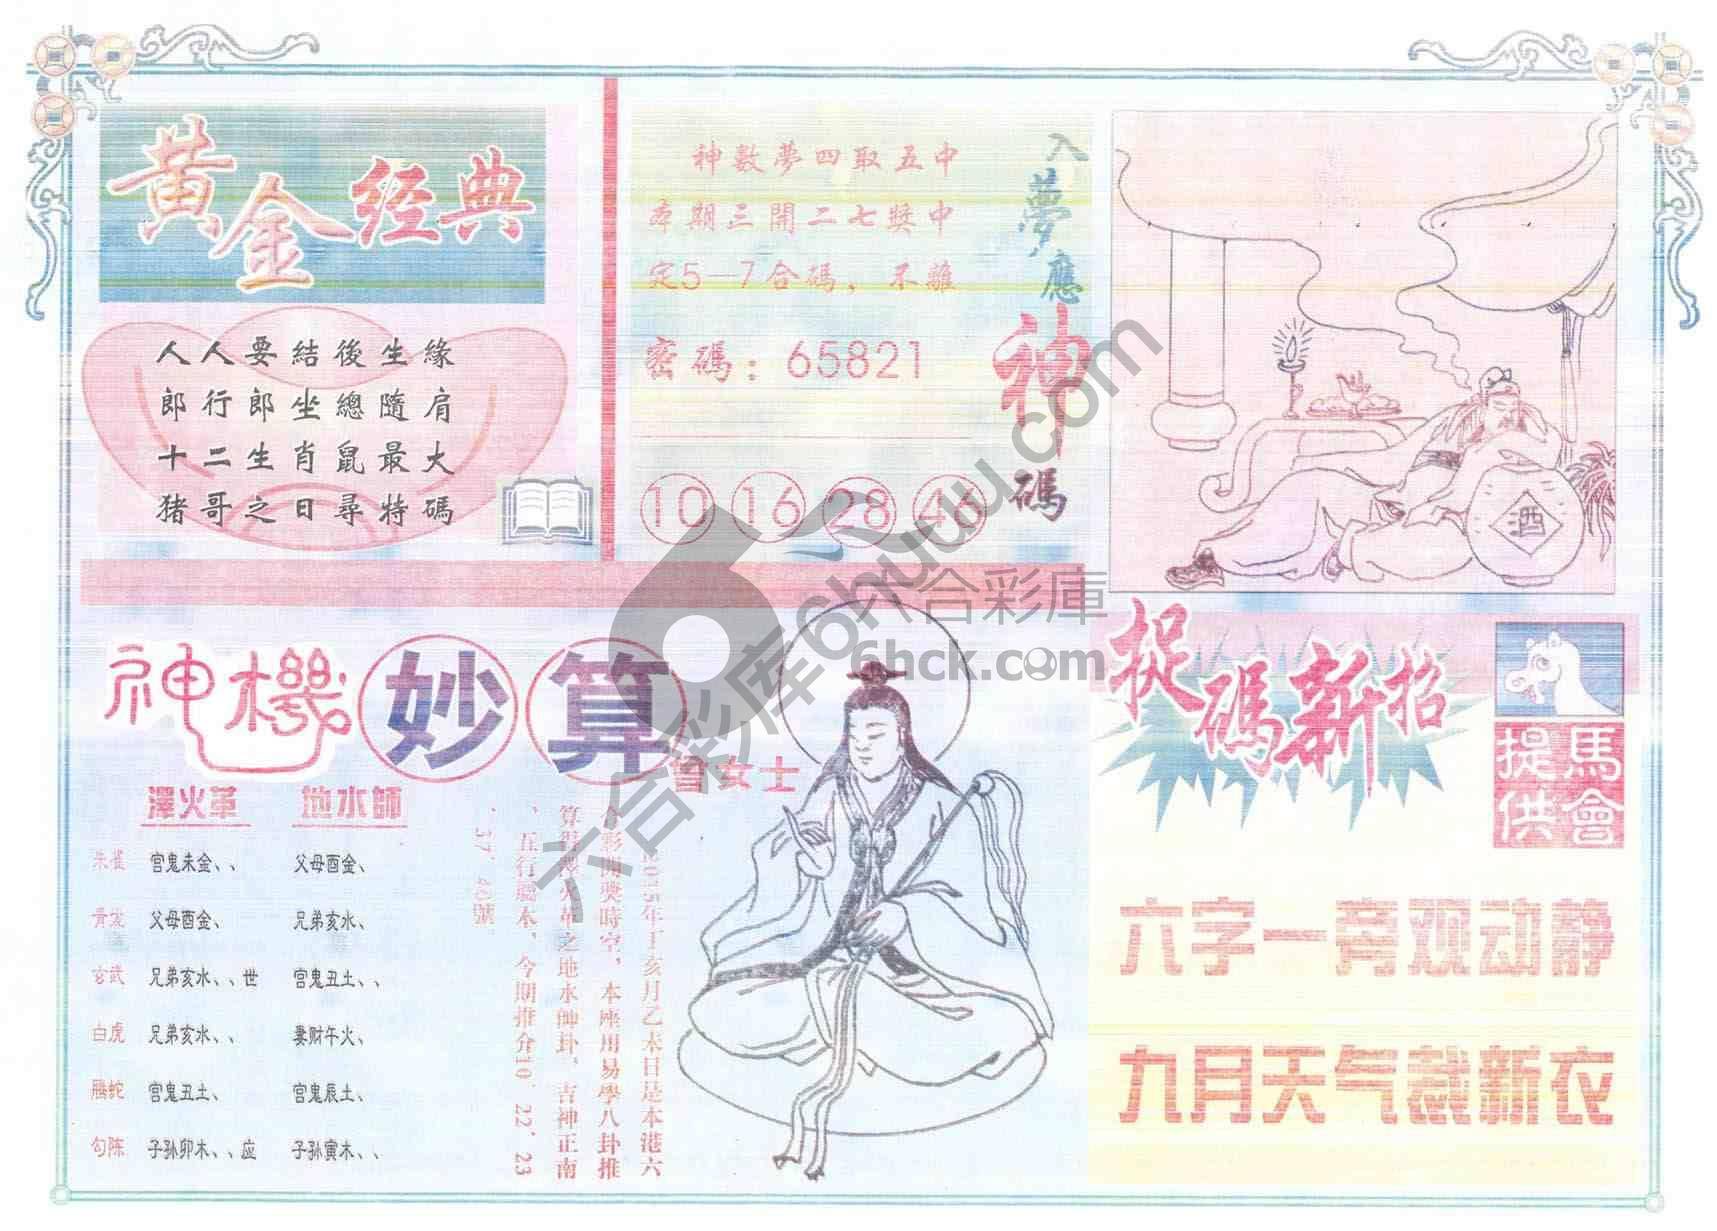 黄金经典
人人要結後生緣
郎行郎坐總隨肩
十二生肖鼠最大
猪哥之日尋特碼
神數夢四取五中
本期三開二七獎中
定5—7合碼，不離
密碼：65821
10 16 28 46
入夢應神碼
酒
神機妙算
曾女士
澤火革 地水師
朱雀 官鬼未金、、 父母酉金、
青龙 父母酉金、 兄弟亥水、
玄武 兄弟亥水、、世 官鬼丑土、、
白虎 兄弟亥水、、 妻财午火、
腾蛇 官鬼丑土、 官鬼辰土、
勾陈 子孙卯木、、应 子孙寅木、、
2015年丁亥月乙未日是本港六
彩開獎時空，本座用易學八卦推
算得澤火革之地水師卦，吉神正南
、五行屬木，今期推介10．22．23
．37．
號
捉碼新招
馬會提供
六字一旁观动静
九月天气裁新衣
六合彩库6huuu.com
六合彩庫
6hck.com